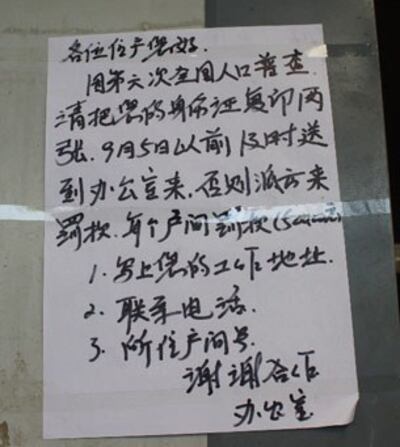 各位住户您好.
因第六次全国人口普查.
请把您的身份证复印两
张.9月5日以前及时送
到办公室来,否则派方来
罚款.每个户间罚款(500元)
1.写上您的工作地址.
2.联系电话.
3.所住户间号.
谢谢合作
办公室